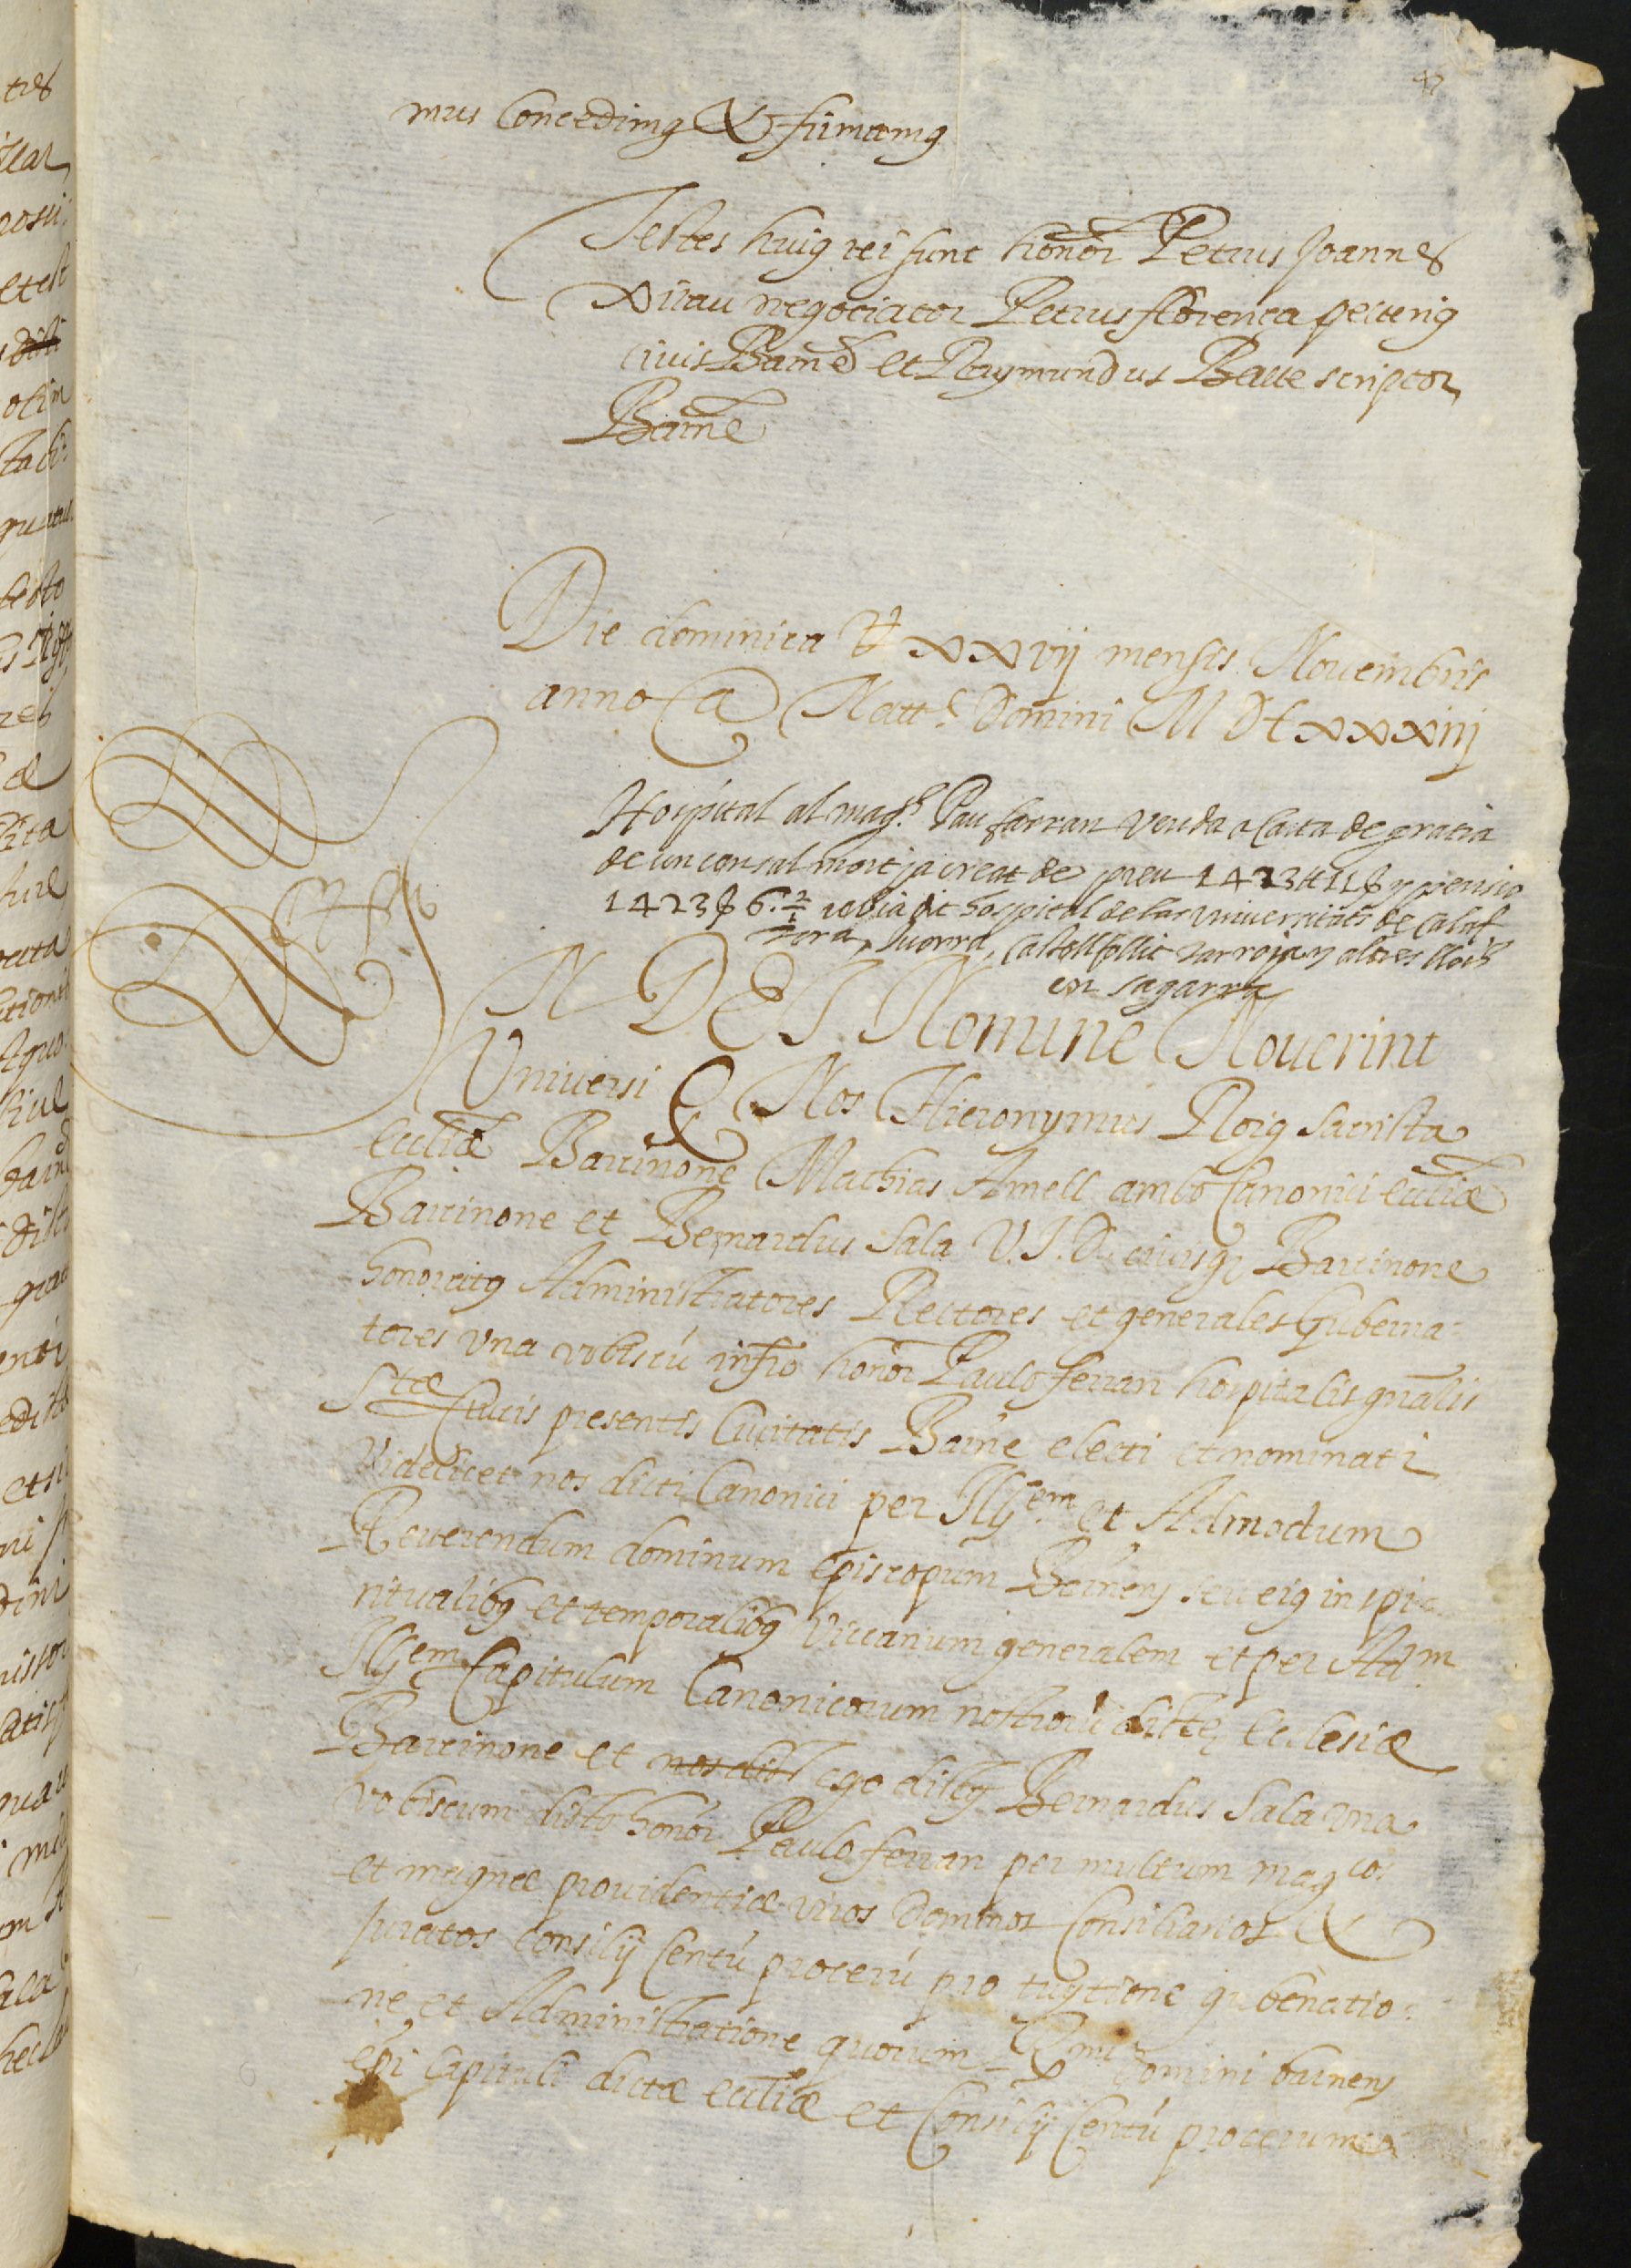 mus Concedimus & firmamus
Testes huius rei sunt honor Petrus Joannes
Xirau negociator Petrus florença peiterius
civis Barne et Raymundus Batte scriptor
Barne
Die dominica xxvij mensis Novembris
anno a Natte Domini M DC xxxiiij
Hospital al magch Pau ferran venda a Carta de gratia
de un censal mort ja creat de preu 1423 ll 11 s y pensio
1423 s 6 rebia dit hospital de las universitats de Calaf
Ivorra, Castellfollit y altres llochs
en sagarra
IN DEI Nomine Noverint
Universi Q Nos Hieronymus Roig Sacrista
Ecclīæ Barcinone Mathias Amell ambo Canonici ecclīæ
Barcinone et Bernardus Sala V.J.D. civisq3 Barcinone
honoratus Administratores Rectores et generales Guberna=
tores una vobiscū infro honor Paulo ferran hospitalis gnālis
Stæ Crucis presentis Civitatis Barne electi et nominati
Videlicet nos dicti Canonici per Illem et Admodum
Reverendum dominum Episcopum Barnens seu eius in spi-
ritualibus et temporalibus Vicarium generalem et per Adm
Illem Capitulum Canonicorum nostrorū dictę Ecclesiæ
Barcinone et nos dict ego dictus Bernardus Sala una
vobiscum dicto honor Paulo ferran per multum magcos
et magnæ providentiæ viros Dominos Consiliarios &
Juratos Consilij Centū procerū pro tuytione gubernatio=
ne et Administratione quorum Rmi Domini barnens
Epi Capituli dictæ ecclīæ et Consilij Centū procerum